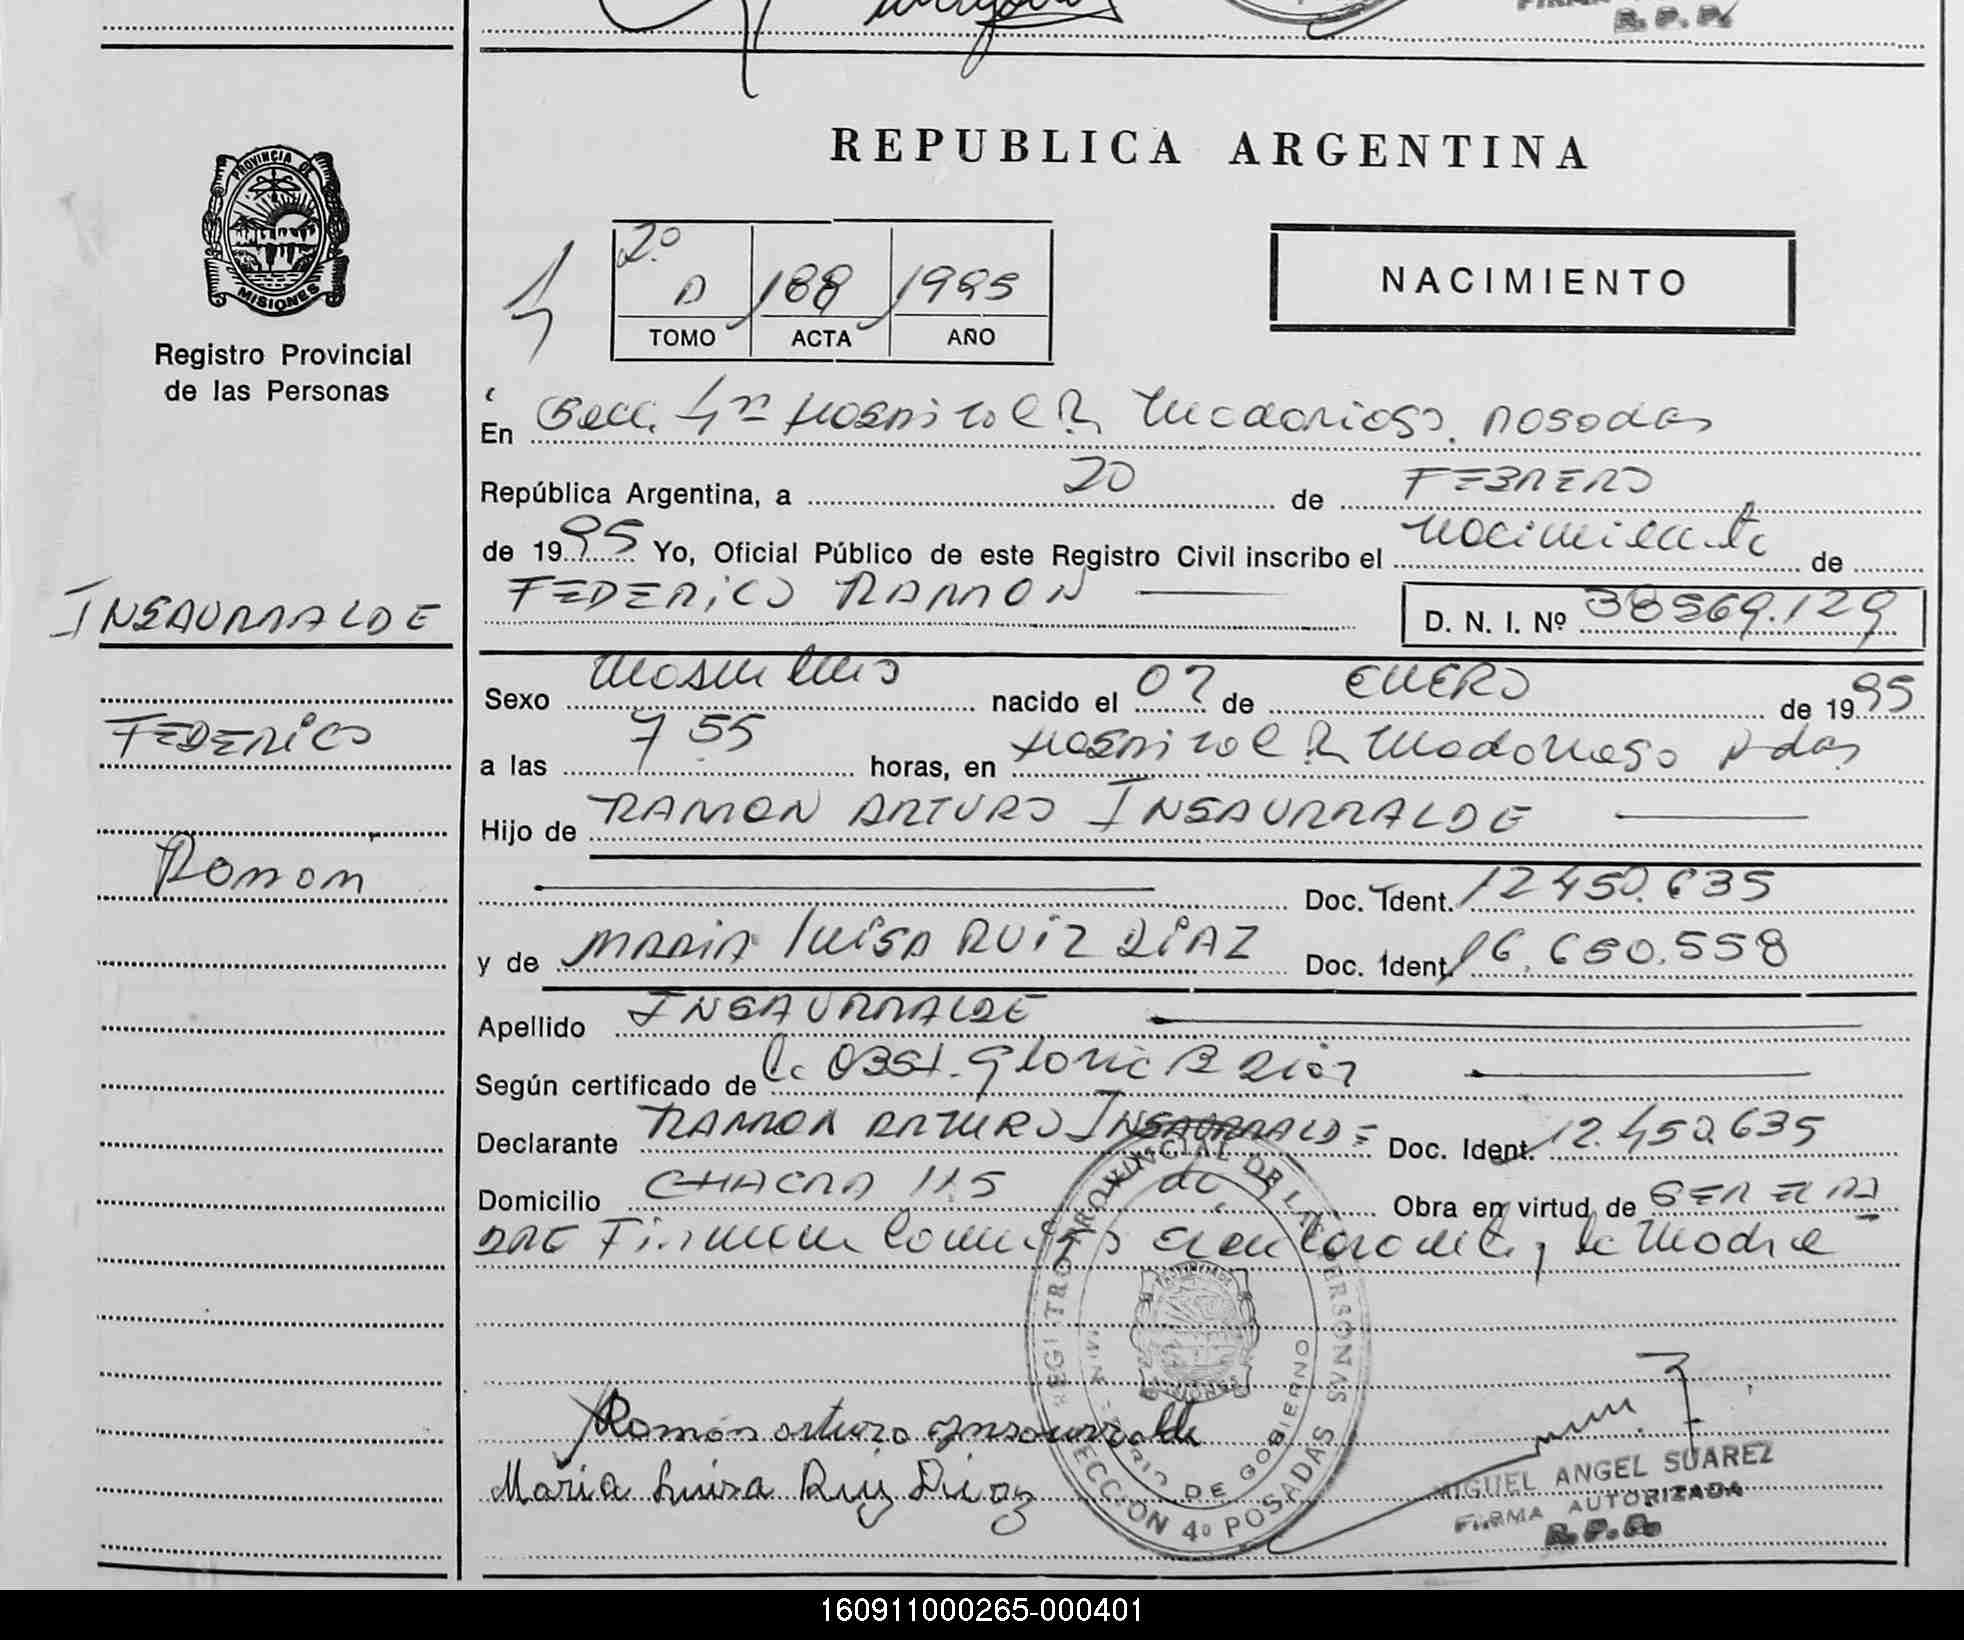 R. P. P.
REPUBLICA ARGENTINA
PROVINCIA DE MISIONES
Registro Provincial
de las Personas
2º D 188 1995
TOMO ACTA AÑO
NACIMIENTO
En Secc. 4ta Hospital R. Madariaga. Posadas
República Argentina, a 20 de FEBRERO
de 1995 Yo, Oficial Público de este Registro Civil inscribo el nacimiento de
FEDERICO RAMON D. N. I. Nº 38569.129
INSAURRALDE
FEDERICO
Ramon
Sexo masculino nacido el 07 de ENERO de 1995
a las 7 55 horas, en Hospital R. Madariaga P-das
Hijo de RAMON ARTURO INSAURRALDE
Doc. Ident. 12 450.635
y de MARIA LUISA RUIZ DIAZ Doc. Ident. 16.650.558
Apellido INSAURRALDE
Según certificado de la OBST. Gloria B Diaz
Declarante RAMON ARTURO INSAURRALDE Doc. Ident. 12.450.635
Domicilio CHACRA 115 Obra en virtud de SER EL PA
DRE Firman el declarante y la Madre
REGISTRO PROVINCIAL DE LAS PERSONAS
MINISTERIO DE GOBIERNO
MISIONES
SECCION 4º POSADAS
Ramón arturo Insaurralde
Maria Luisa Ruiz Diaz
MIGUEL ANGEL SUAREZ
FIRMA AUTORIZADA
R. P. P.
160911000265-000401